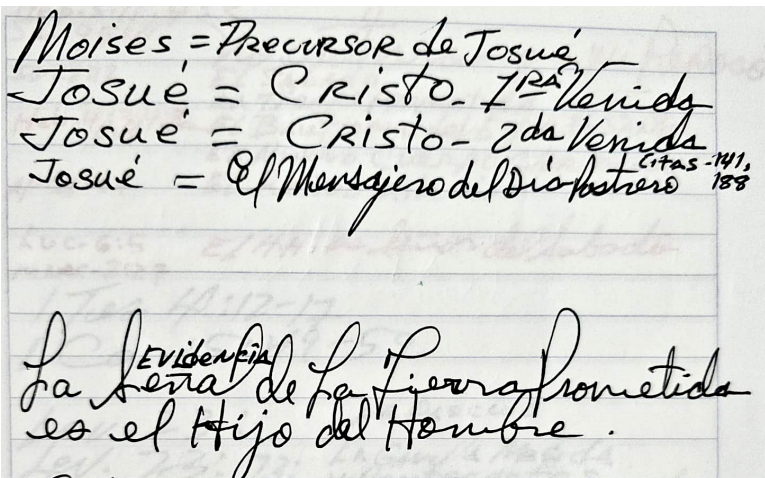 Moises = Precursor de Josué
Josué = Cristo - 1ra Venida
Josué = Cristo - 2da Venida
Josué = El Mensajero del Día Postrero Citas - 141, 188
Evidencia
La Señal de La Tierra Prometida
es el Hijo del Hombre.